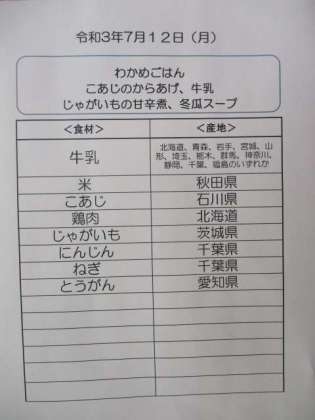 令和3年7月12日（月）
わかめごはん
こあじのからあげ、牛乳
じゃがいもの甘辛煮、冬瓜スープ
＜食材＞ ＜産地＞
牛乳 北海道、青森、岩手、宮城、山
形、埼玉、栃木、群馬、神奈川、
静岡、千葉、福島のいずれか
米 秋田県
こあじ 石川県
鶏肉 北海道
じゃがいも 茨城県
にんじん 千葉県
ねぎ 千葉県
とうがん 愛知県